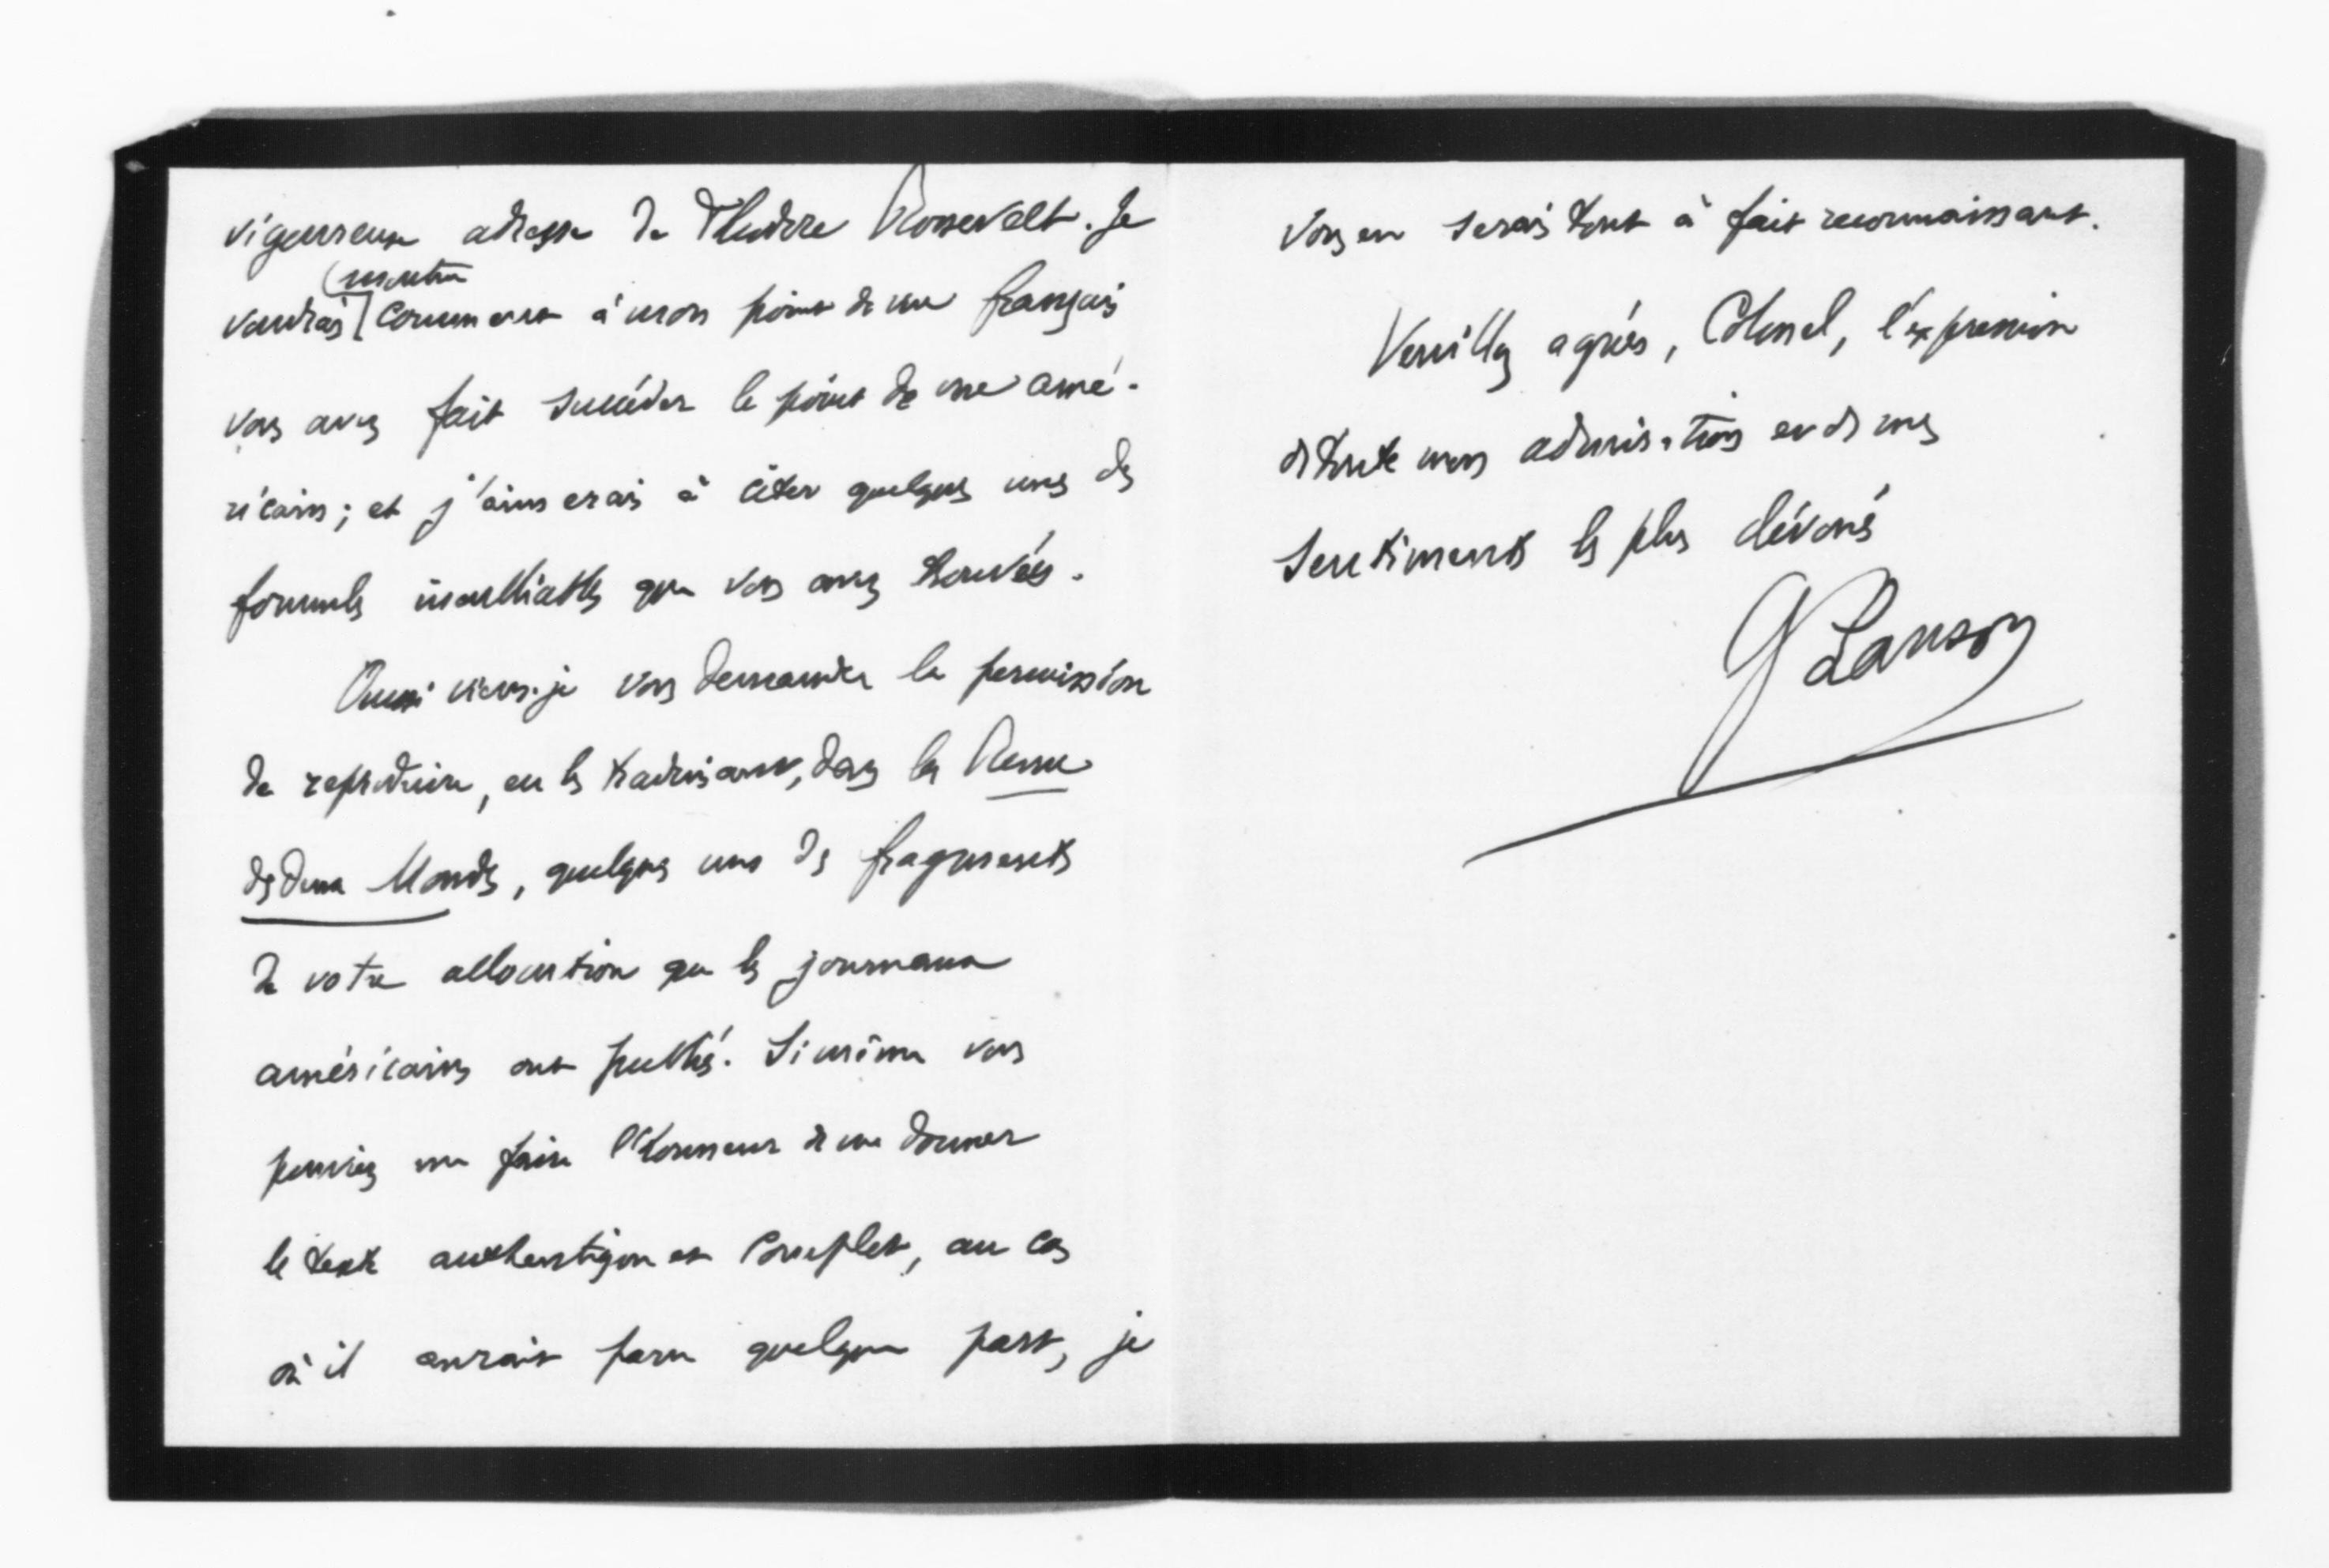 vigoureuse adresse de Théodore Roosevelt. Je
montrer
voudrais comment à mon point de vue français
vous avez fait succéder le point de vue amé-
ricain ; et j'aimerais à citer quelques unes des
formules inoubliables que vous avez trouvées.
Aussi viens-je vous demander la permission
de reproduire, en les traduisant, dans la Revue
des deux Mondes, quelques uns des fragments
de votre allocution que les journaux
américains ont publiés. Si même vous
pouviez me faire l'honneur de me donner
le texte authentique et complet, au cas
où il aurait paru quelque part, je
vous en serais tout à fait reconnaissant.
Veuillez agréer, Colonel, l'expression
de toute mon admiration et de mes
sentiments les plus dévoués
G Lanson